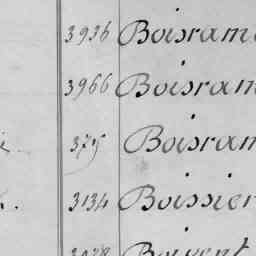 3936 Boisram
3966 Boisram
375 Boisram
3134 Boissier
Boivent